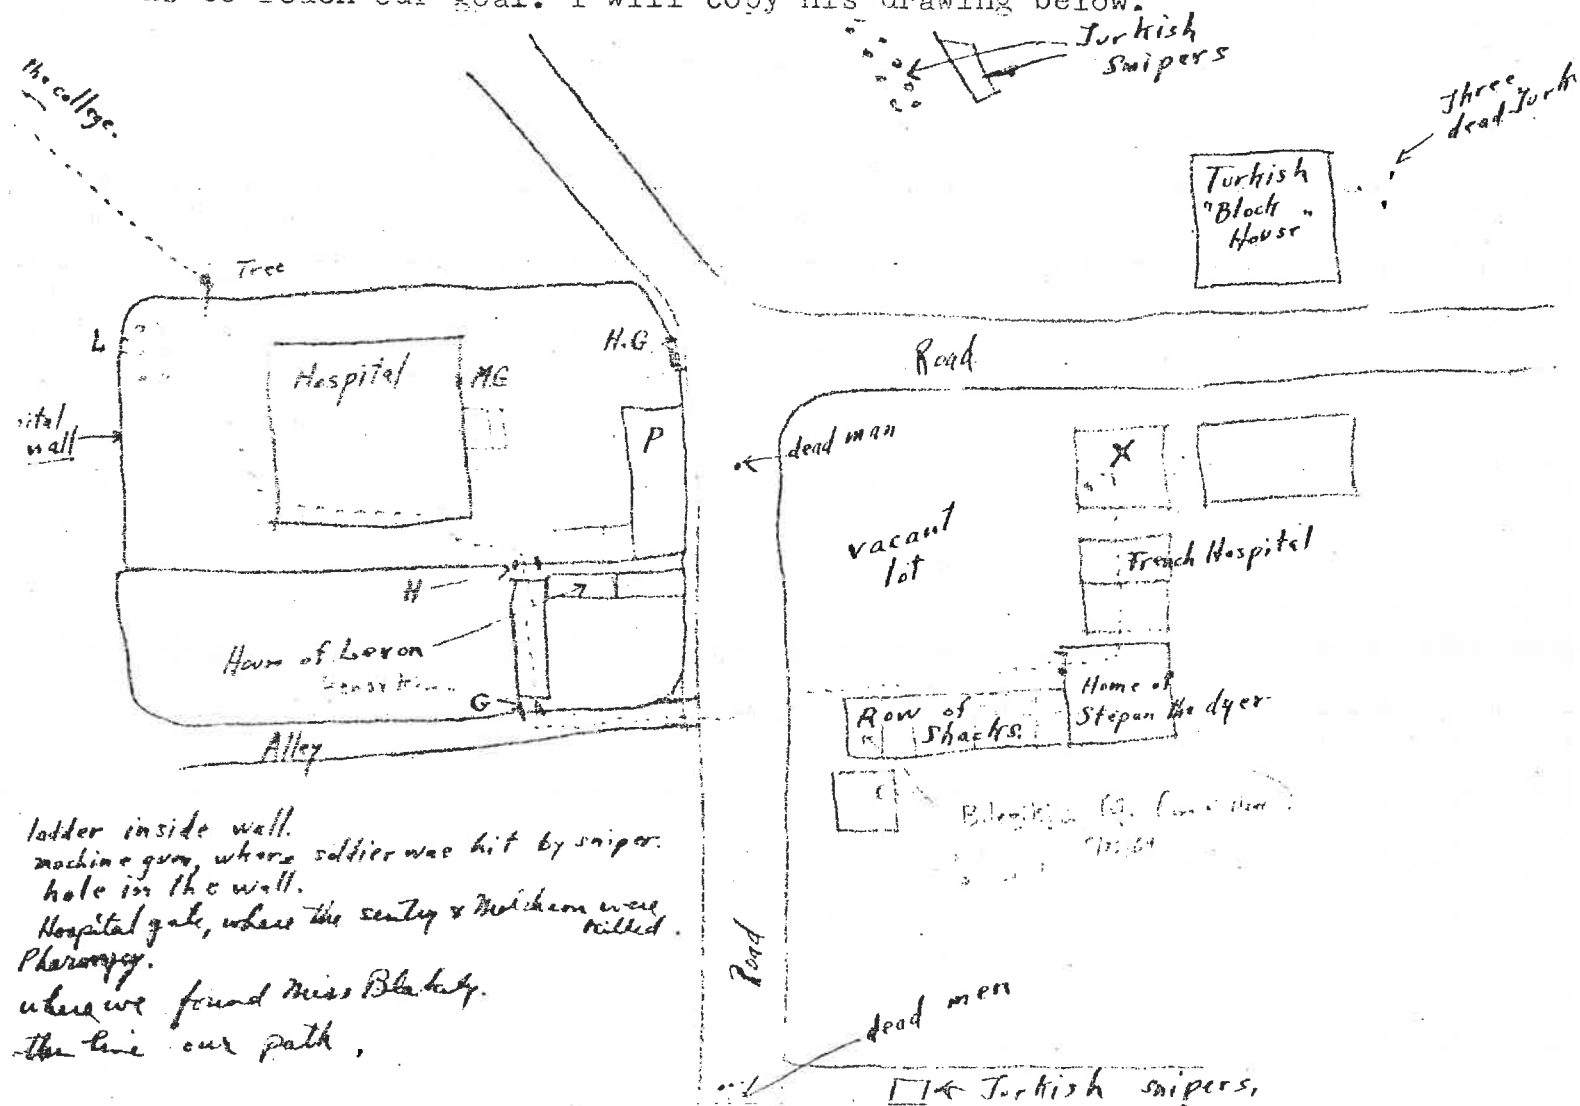 to reach our goal. I will copy his drawing below.
Turkish
Snipers
the college.
Three
dead Turk
Turkish
"Block
House"
Tree
L
H.G
Hospital
MG
Road
ital
wall
P
dead man
X
vacant
lot
French Hospital
H
House of Levon
G
Home of
Stepan the dyer
Row of
Shacks.
Alley
ladder inside wall.
machine gun, where soldier was hit by sniper.
hole in the wall.
Hospital gate, where the sentry & were
killed.
Pharmacy.
where we found Miss Blakely.
the line our path.
Road
dead men
Turkish snipers.